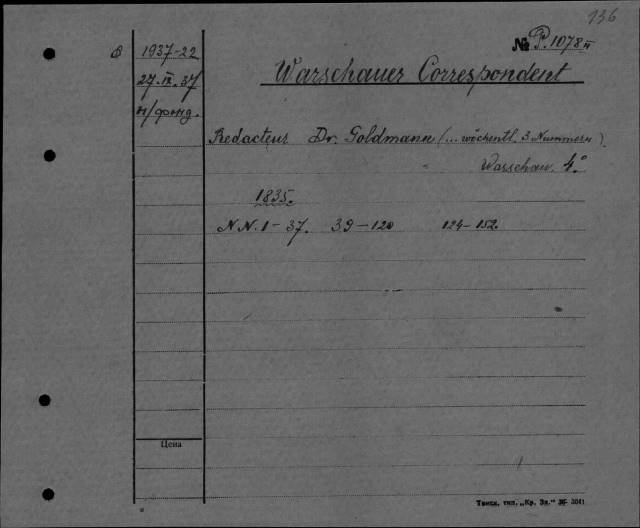 136
№ P.1078 II
в 1937-22
27.IX.37
н/фонд.
Warschauer Correspondent
Redacteur Dr. Goldmann (... wöchentl. 3 Nummern).
Warschau. 4°
1835.
NN. 1-37. 39-120 124-152.
Цена
Типл. тип. „Кр. Зн."